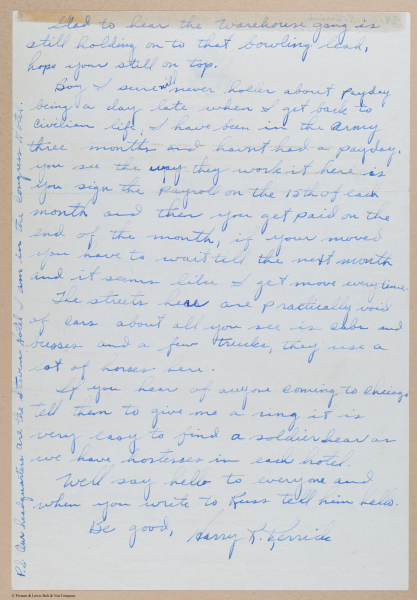 Glad to hear the Warehouse gang is
still holding on to that bowling lead,
hope your still on top.
Boy I sure will never holier about payday
being a day late when I get back to
civilian life. I have been in the army
three months and havnt had a payday.
you see the way they work it here is
you sign the payroll on the 15th of each
month and then you get paid on the
end of the month, if your moved
you have to wait till the next month
and it seems like I get move everytime.
The streets here are practically void
of cars about all you see is cabs and
busses and a few trucks, they use a
lot of horses here.
If you hear of anyone coming to Chicago
tell them to give me a ring it is
very easy to find a soldier hear as
we have hostesses in each hotel.
Well say hello to everyone and
when you write to Russ tell him hello.
Be good, Harry R. Kerrick
P.S. Our headquarters are the Stevens Hotel I am in the Congress Hotel.